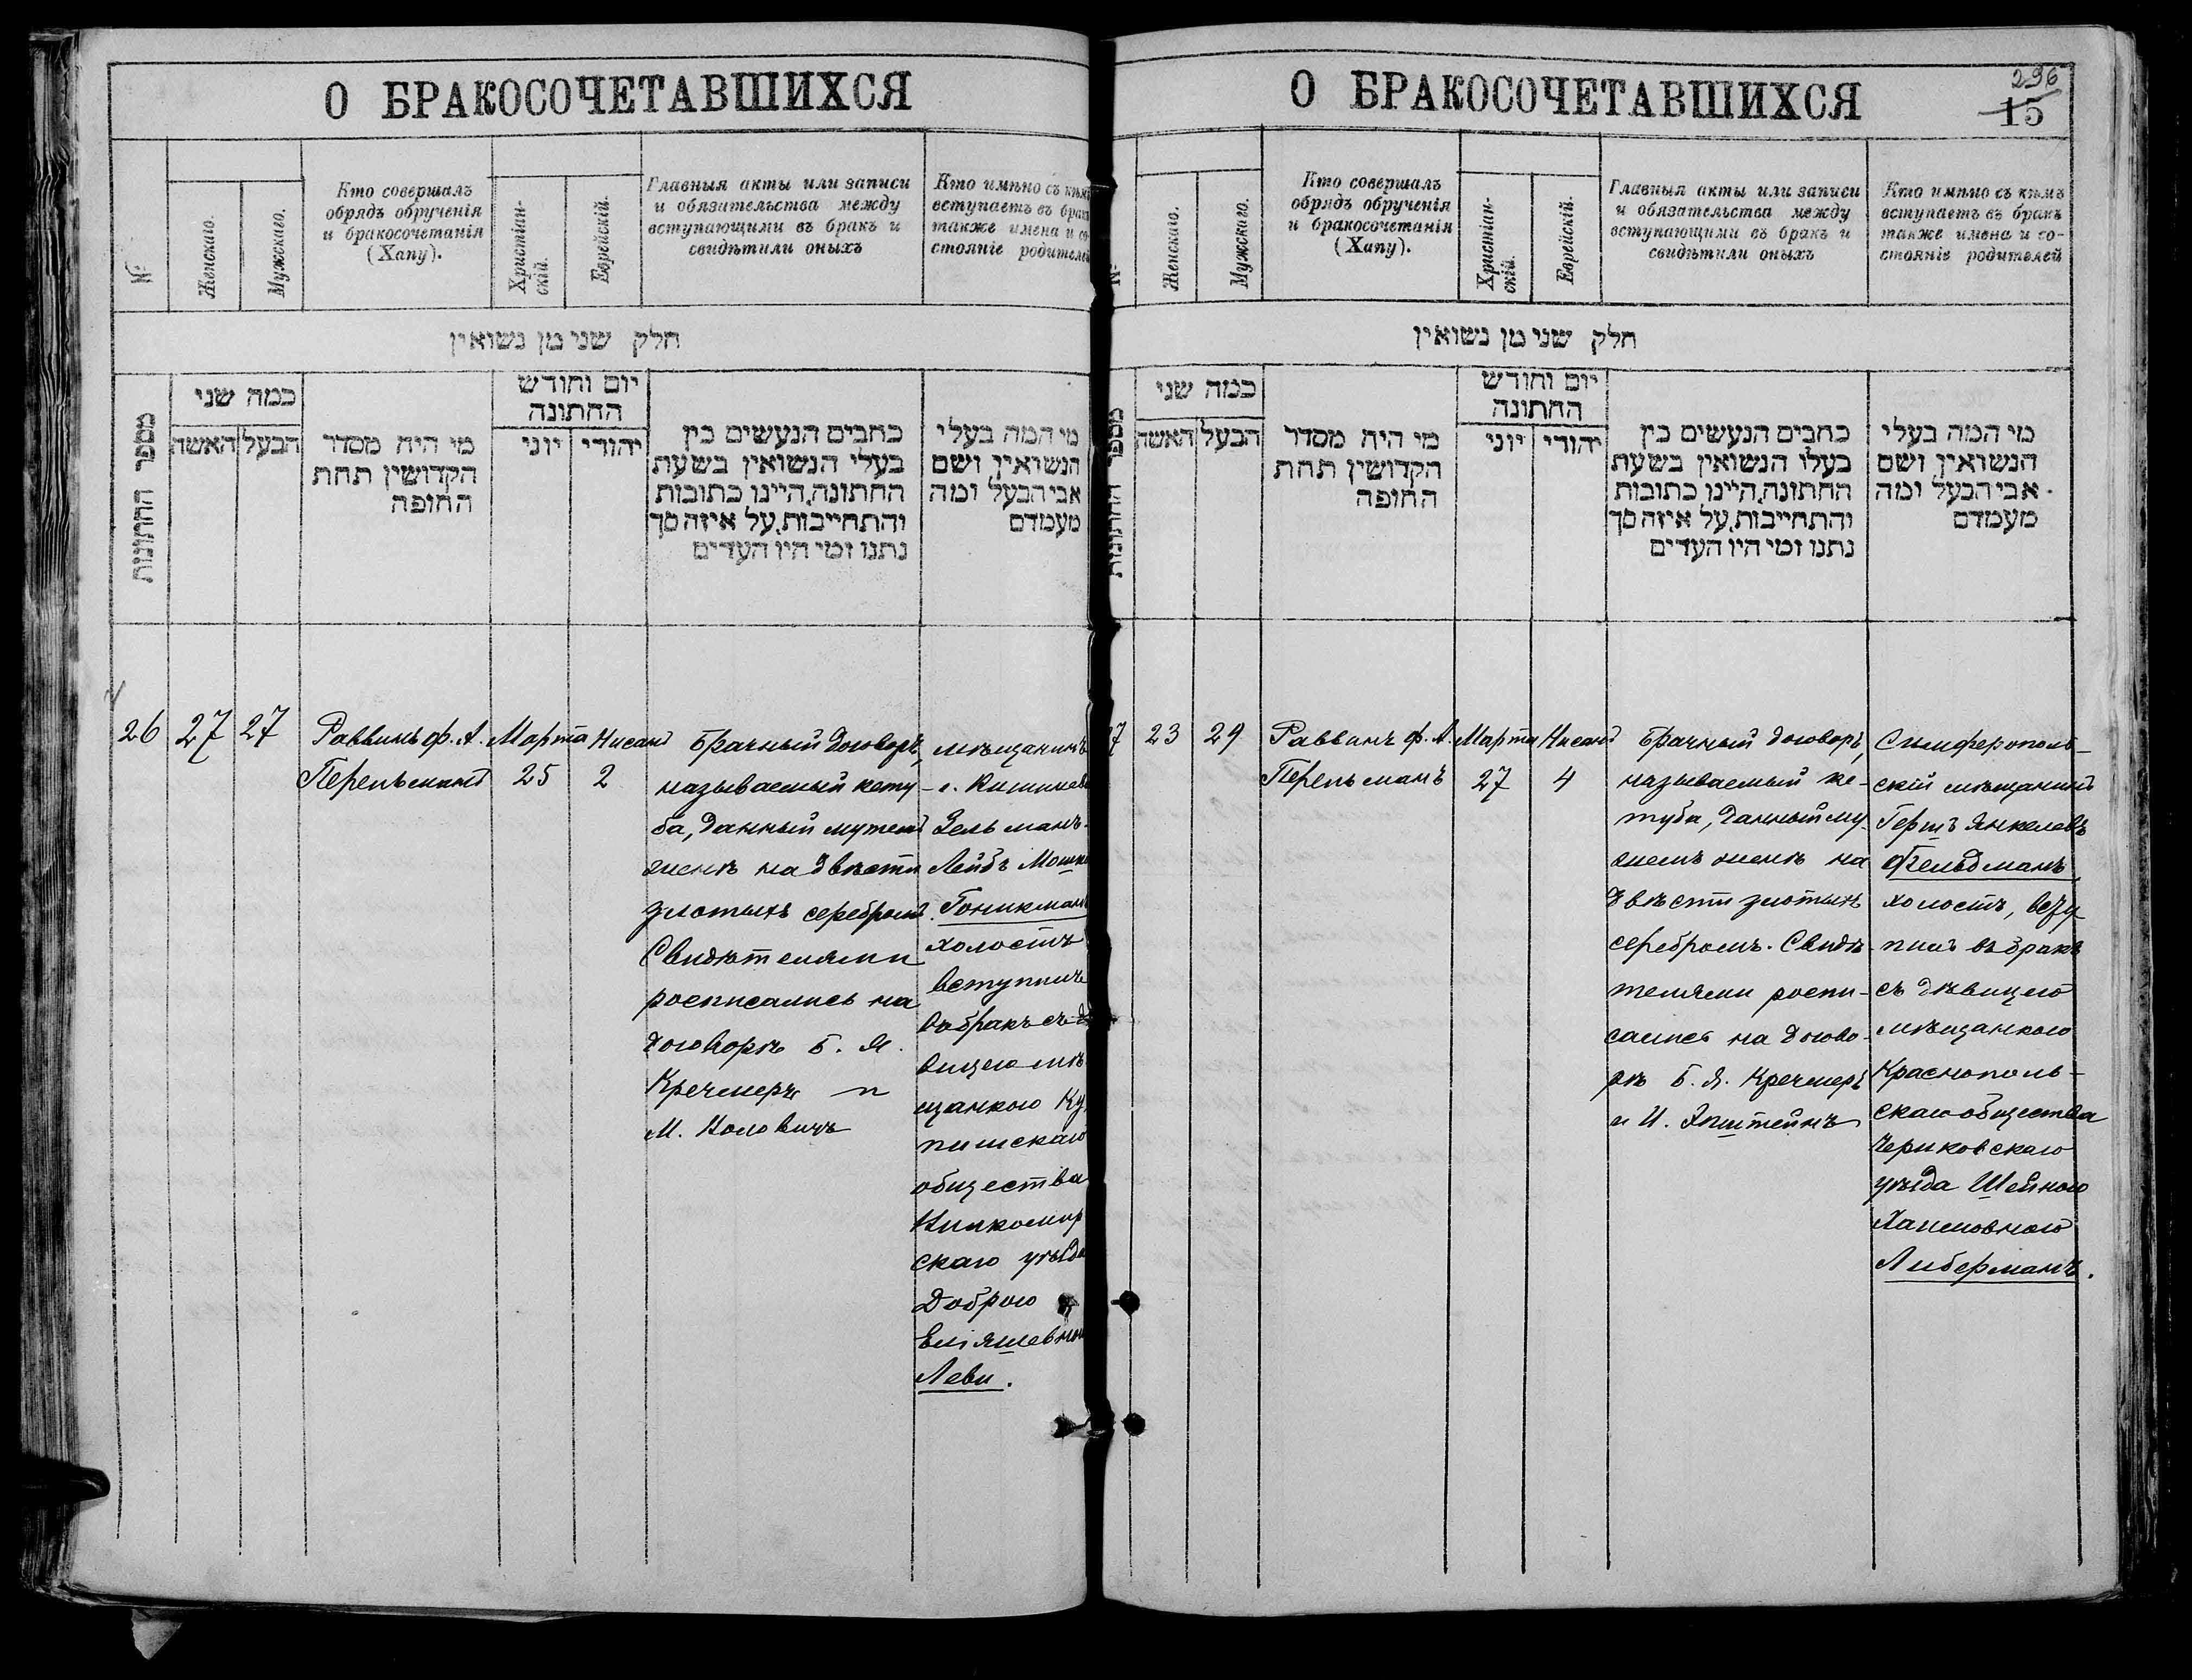 О БРАКОСОЧЕТАВШИХСЯ
№
Женскаго.
Мужскаго.
Кто совершалъ
обрядъ обрученія
и бракосочетанія
(Хапу).
Христіан-
скій.
Еврейскій.
Главныя акты или записи
и обязательства между
вступающими въ бракъ и
свидѣтили оныхъ
Кто имѣно съ кѣмъ
вступаетъ въ бракъ
также имена и со-
стояніе родителей
חלק שני מן נשואין
מספר החתונות
כמה שני
האשה
הבעל
מי היה מסדר
הקדושין תחת
החופה
יום וחודש
החתונה
יוני
יהודי
כתבים הנעשים בין
בעלי הנשואין בשעת
החתונה, היינו כתובות
והתחייבות, על איזה סך
נתנו ומי היו העדים
מי המה בעלי
הנשואין ושם
אבי הבעל ומה
מעמדם
26
27
27
Раввинъ ф. А.
Перельманъ
Марта
25
Нисанъ
2
Брачный договоръ,
называемый кету-
ба, данный мужемъ
женѣ на двѣсти
злотыхъ серебромъ
Свидѣтелями
росписались на
договорѣ Б. Я.
Кречмеръ и
М. Коловичъ
мѣщанинъ
г. Кишинева
Зельманъ-
Лейбъ Мошк
Гоникман
холостъ
вступилъ
въ бракъ съ дѣ
вицею мѣ
щанкою Ку
пишскаго
общества
Вилкомир
скаго уѣзда
Доброю
Еліяшевною
Леви.
О БРАКОСОЧЕТАВШИХСЯ
296
15
№
Женскаго.
Мужскаго.
Кто совершалъ
обрядъ обрученія
и бракосочетанія
(Хапу).
Христіан-
скій.
Еврейскій.
Главныя акты или записи
и обязательства между
вступающими въ бракъ и
свидѣтили оныхъ
Кто имѣно съ кѣмъ
вступаетъ въ бракъ
также имена и со-
стояніе родителей
חלק שני מן נשואין
מספר החתונות
כמה שני
האשה
הבעל
מי היה מסדר
הקדושין תחת
החופה
יום וחודש
החתונה
יוני
יהודי
כתבים הנעשים בין
בעלי הנשואין בשעת
החתונה, היינו כתובות
והתחייבות, על איזה סך
נתנו ומי היו העדים
מי המה בעלי
הנשואין ושם
אבי הבעל ומה
מעמדם
7
23
29
Раввинъ ф. А.
Перельманъ
Марта
27
Нисанъ
4
Брачный договоръ,
называемый ке-
туба, данный му-
жемъ женѣ на
двѣсти злотыхъ
серебромъ. Свидѣ-
телями роспи-
сались на догово-
рѣ Б. Я. Кречмеръ
и И. Эпштейнъ
Симферополь-
скій мѣщанинъ
Гершъ Янкелевъ
Фельдманъ
холостъ, всту
пилъ въ бракъ
съ дѣвицею
мѣщанкою
Краснополь-
скаго общества
Чериковскаго
уѣзда Шейною
Хаимовною
Либерманъ.